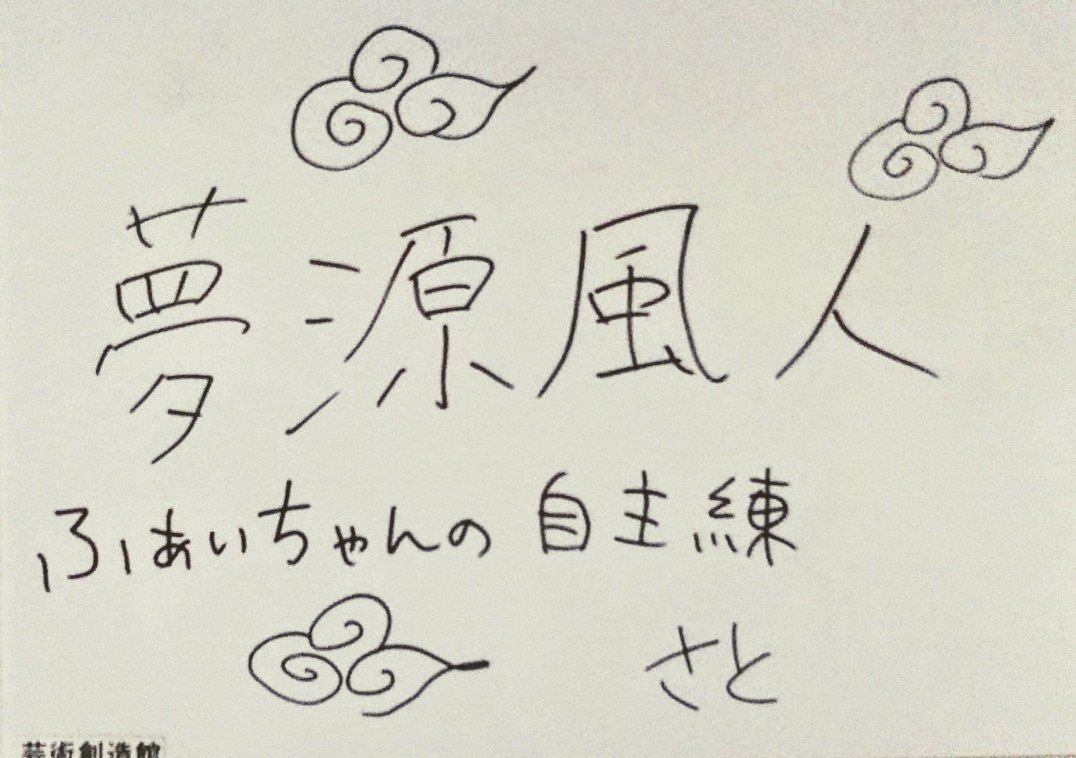 夢源風人
ふぁいちゃんの自主練
さと
芸術創造館